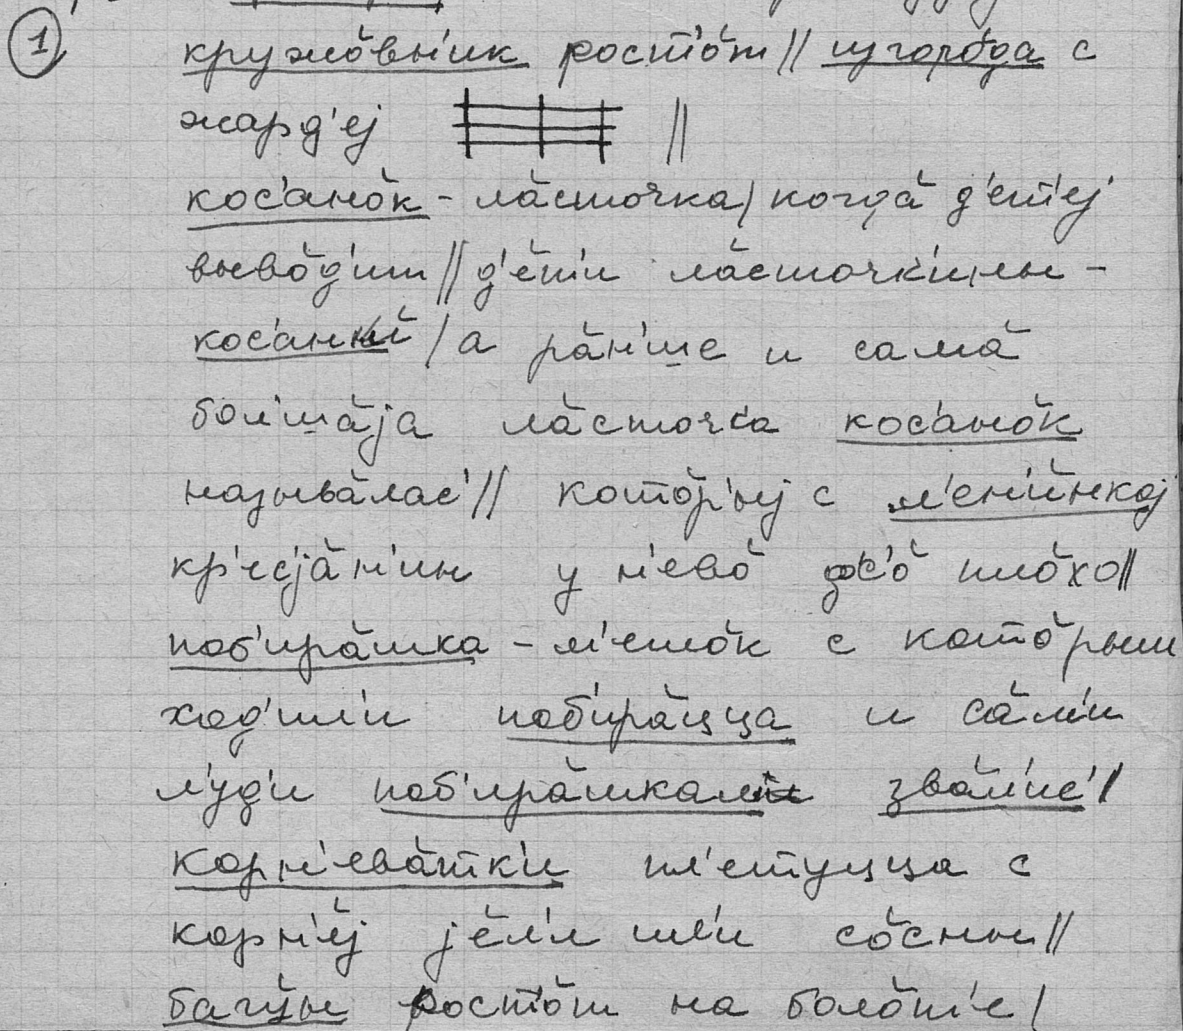 1
кружо́вн'ик рост'о́т // изгоро́да с
жард'еј //
кос'ано́к - ла́сточка / когда́ д'ет'е́ј
выво́д'ит // д'е́т'и ла́сточк'ины -
кос'анк'и́ / а ра́н'ше и сама́
бол'ша́ја ла́сточка кос'ано́к
называ́лас' // кото́р'ыј с л'ен'и́нкој
кр'ес'ја́н'ин у н'ево́ фс'о́ пло́хо //
поб'ира́шка - м'ешо́к с кото́рым
ход'ил'и поб'ира́цца и са́м'и
л'у́д'и поб'ира́шкам'и зва́л'ис' /
корн'ева́тк'и пл'етуцца с
корн'е́ј је́л'и ил'и со́сны //
багуны рост'о́т на боло́т'е /